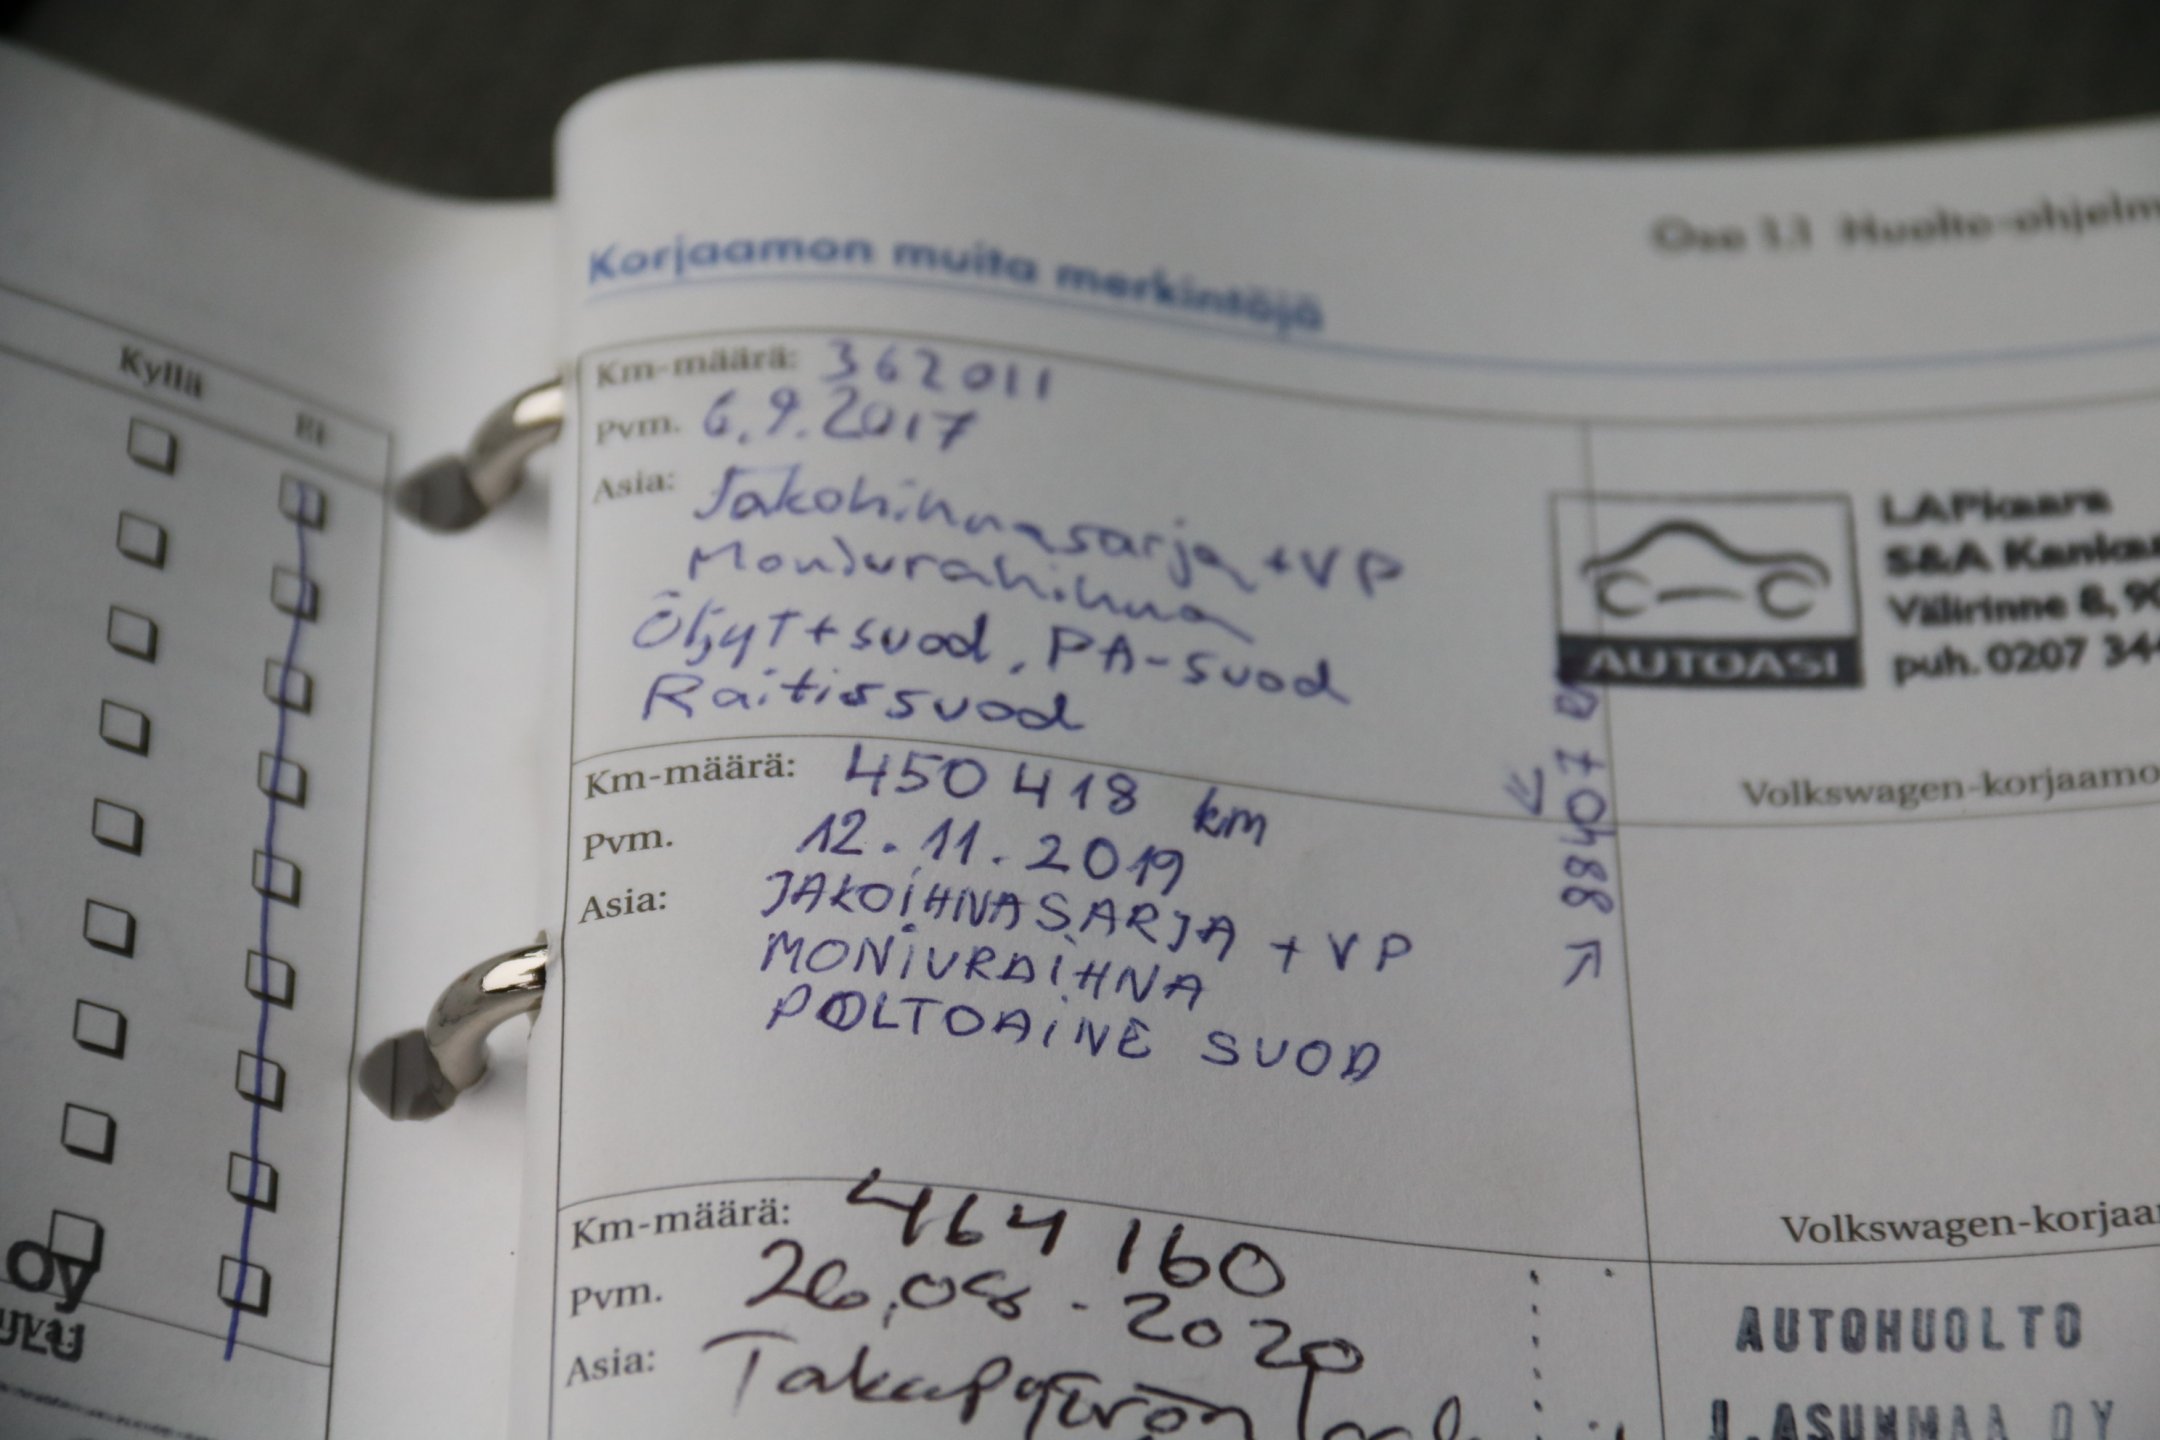 Kyllä
Ei
oy
Osa 1.1 Huolto-ohjelm
Korjaamon muita merkintöjä
Km-määrä: 362011
Pvm. 6.9.2017
Asia: Jakohihnasarja + VP
Moniurahihna
Öljyt + suod, PA-suod
Raitissuod
LAPkaara
S&A Kankaa
Välirinne 8, 90
puh. 0207 344
AUTOASI
Volkswagen-korjaamo
Km-määrä: 450 418 km
Pvm. 12.11.2019
Asia: JAKOIHNASARJA + VP
MONIURAIHNA
POLTOAINE SUOD
88407
Volkswagen-korjaa
Km-määrä: 464 160
Pvm. 26.08.2020
Asia: Takapyörön
AUTOHUOLTO
J.ASUNMAA OY